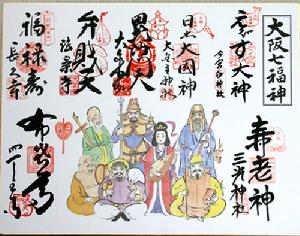 大阪七福神
寿老神
三光神社
大神
今宮戎神社
大国神
大国主神社
毘沙門天
大乗坊
弁財天
法案寺
福禄寿
長久寺
布袋尊
四天王寺